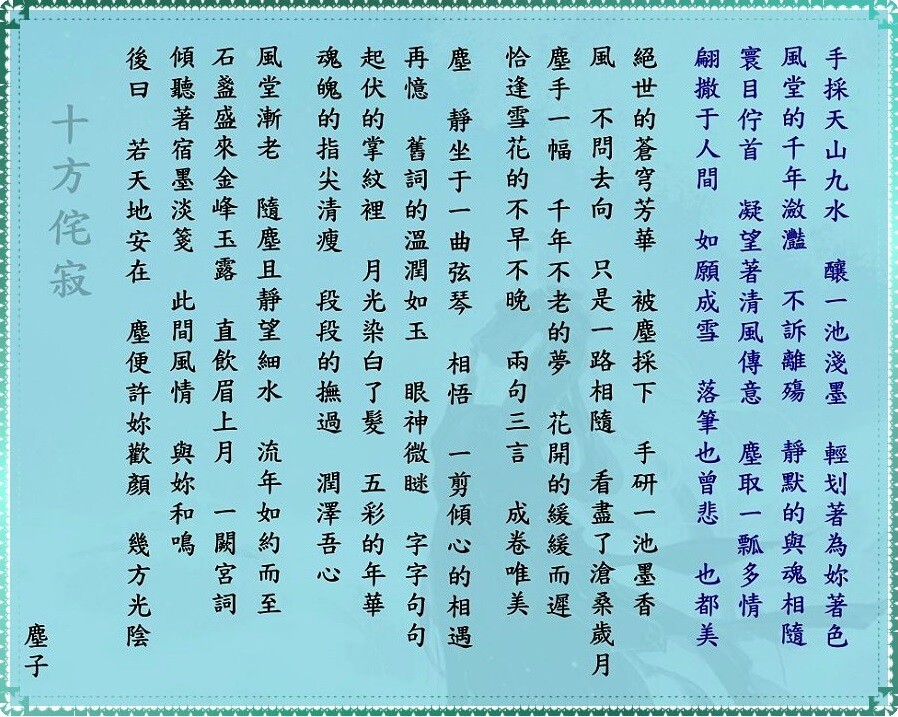 手採天山九水　釀一池淺墨　輕划著為妳著色
風堂的千年瀲灩　不訴離殤　靜默的與魂相隨
寰目佇首　凝望著清風傳意　塵取一瓢多情
翩撒于人間　如願成雪　落筆也曾悲　也都美
絕世的蒼穹芳華　被塵採下　手研一池墨香
風　不問去向　只是一路相隨　看盡了滄桑歲月
塵手一幅　千年不老的夢　花開的緩緩而遲
恰逢雪花的不早不晚　兩句三言　成卷唯美
塵　靜坐于一曲弦琴　相悟　一剪傾心的相遇
再憶　舊詞的溫潤如玉　眼神微瞇　字字句句
起伏的掌紋裡　月光染白了髮　五彩的年華
魂魄的指尖清瘦　段段的撫過　潤澤吾心
風堂漸老　隨塵且靜望細水　流年如約而至
石盞盛來金峰玉露　直飲眉上月　一闕宮詞
傾聽著宿墨淡箋　此間風情　與妳和鳴
後曰　若天地安在　塵便許妳歡顏　幾方光陰
十方侘寂
塵子